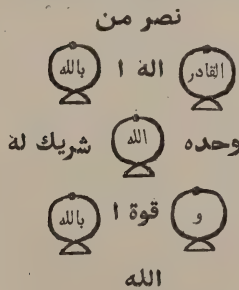 نصر من
القادر الة ا بالله
وحده الله شريك لة
و قوة ا بالله
الله